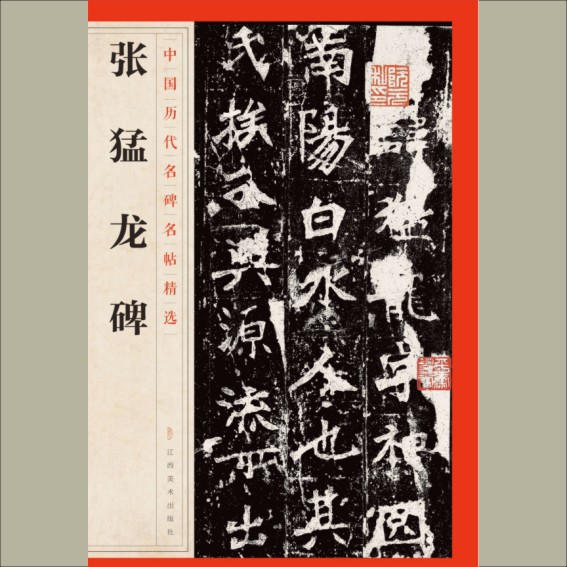 张猛龙碑
中国历代名碑名帖精选
江西美术出版社
諱猛龍字神冏
南陽白水人也其
氏族分興源流所出